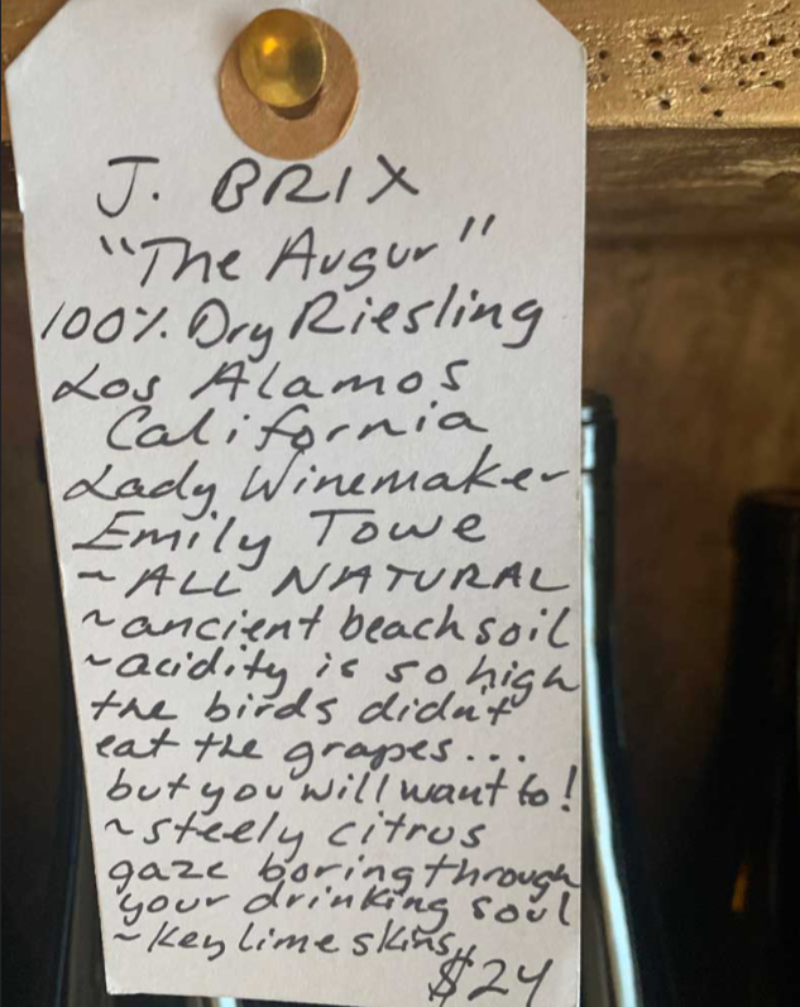 J. BRIX
"The Augur"
100% Dry Riesling
Los Alamos
California
Lady Winemaker
Emily Towe
~ ALL NATURAL
~ ancient beach soil
~ acidity is so high
the birds didn't
eat the grapes...
but you will want to!
~ steely citrus
gaze boring through
your drinking soul
~ Key lime skins
$24